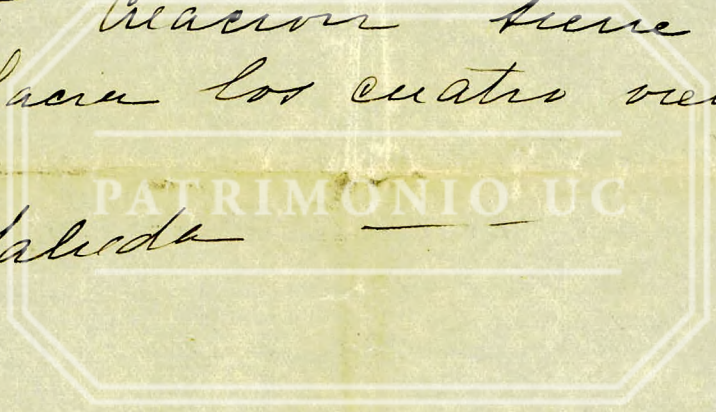 Creacion tiene
hacia los cuatro vie
PATRIMONIO UC
Saluda